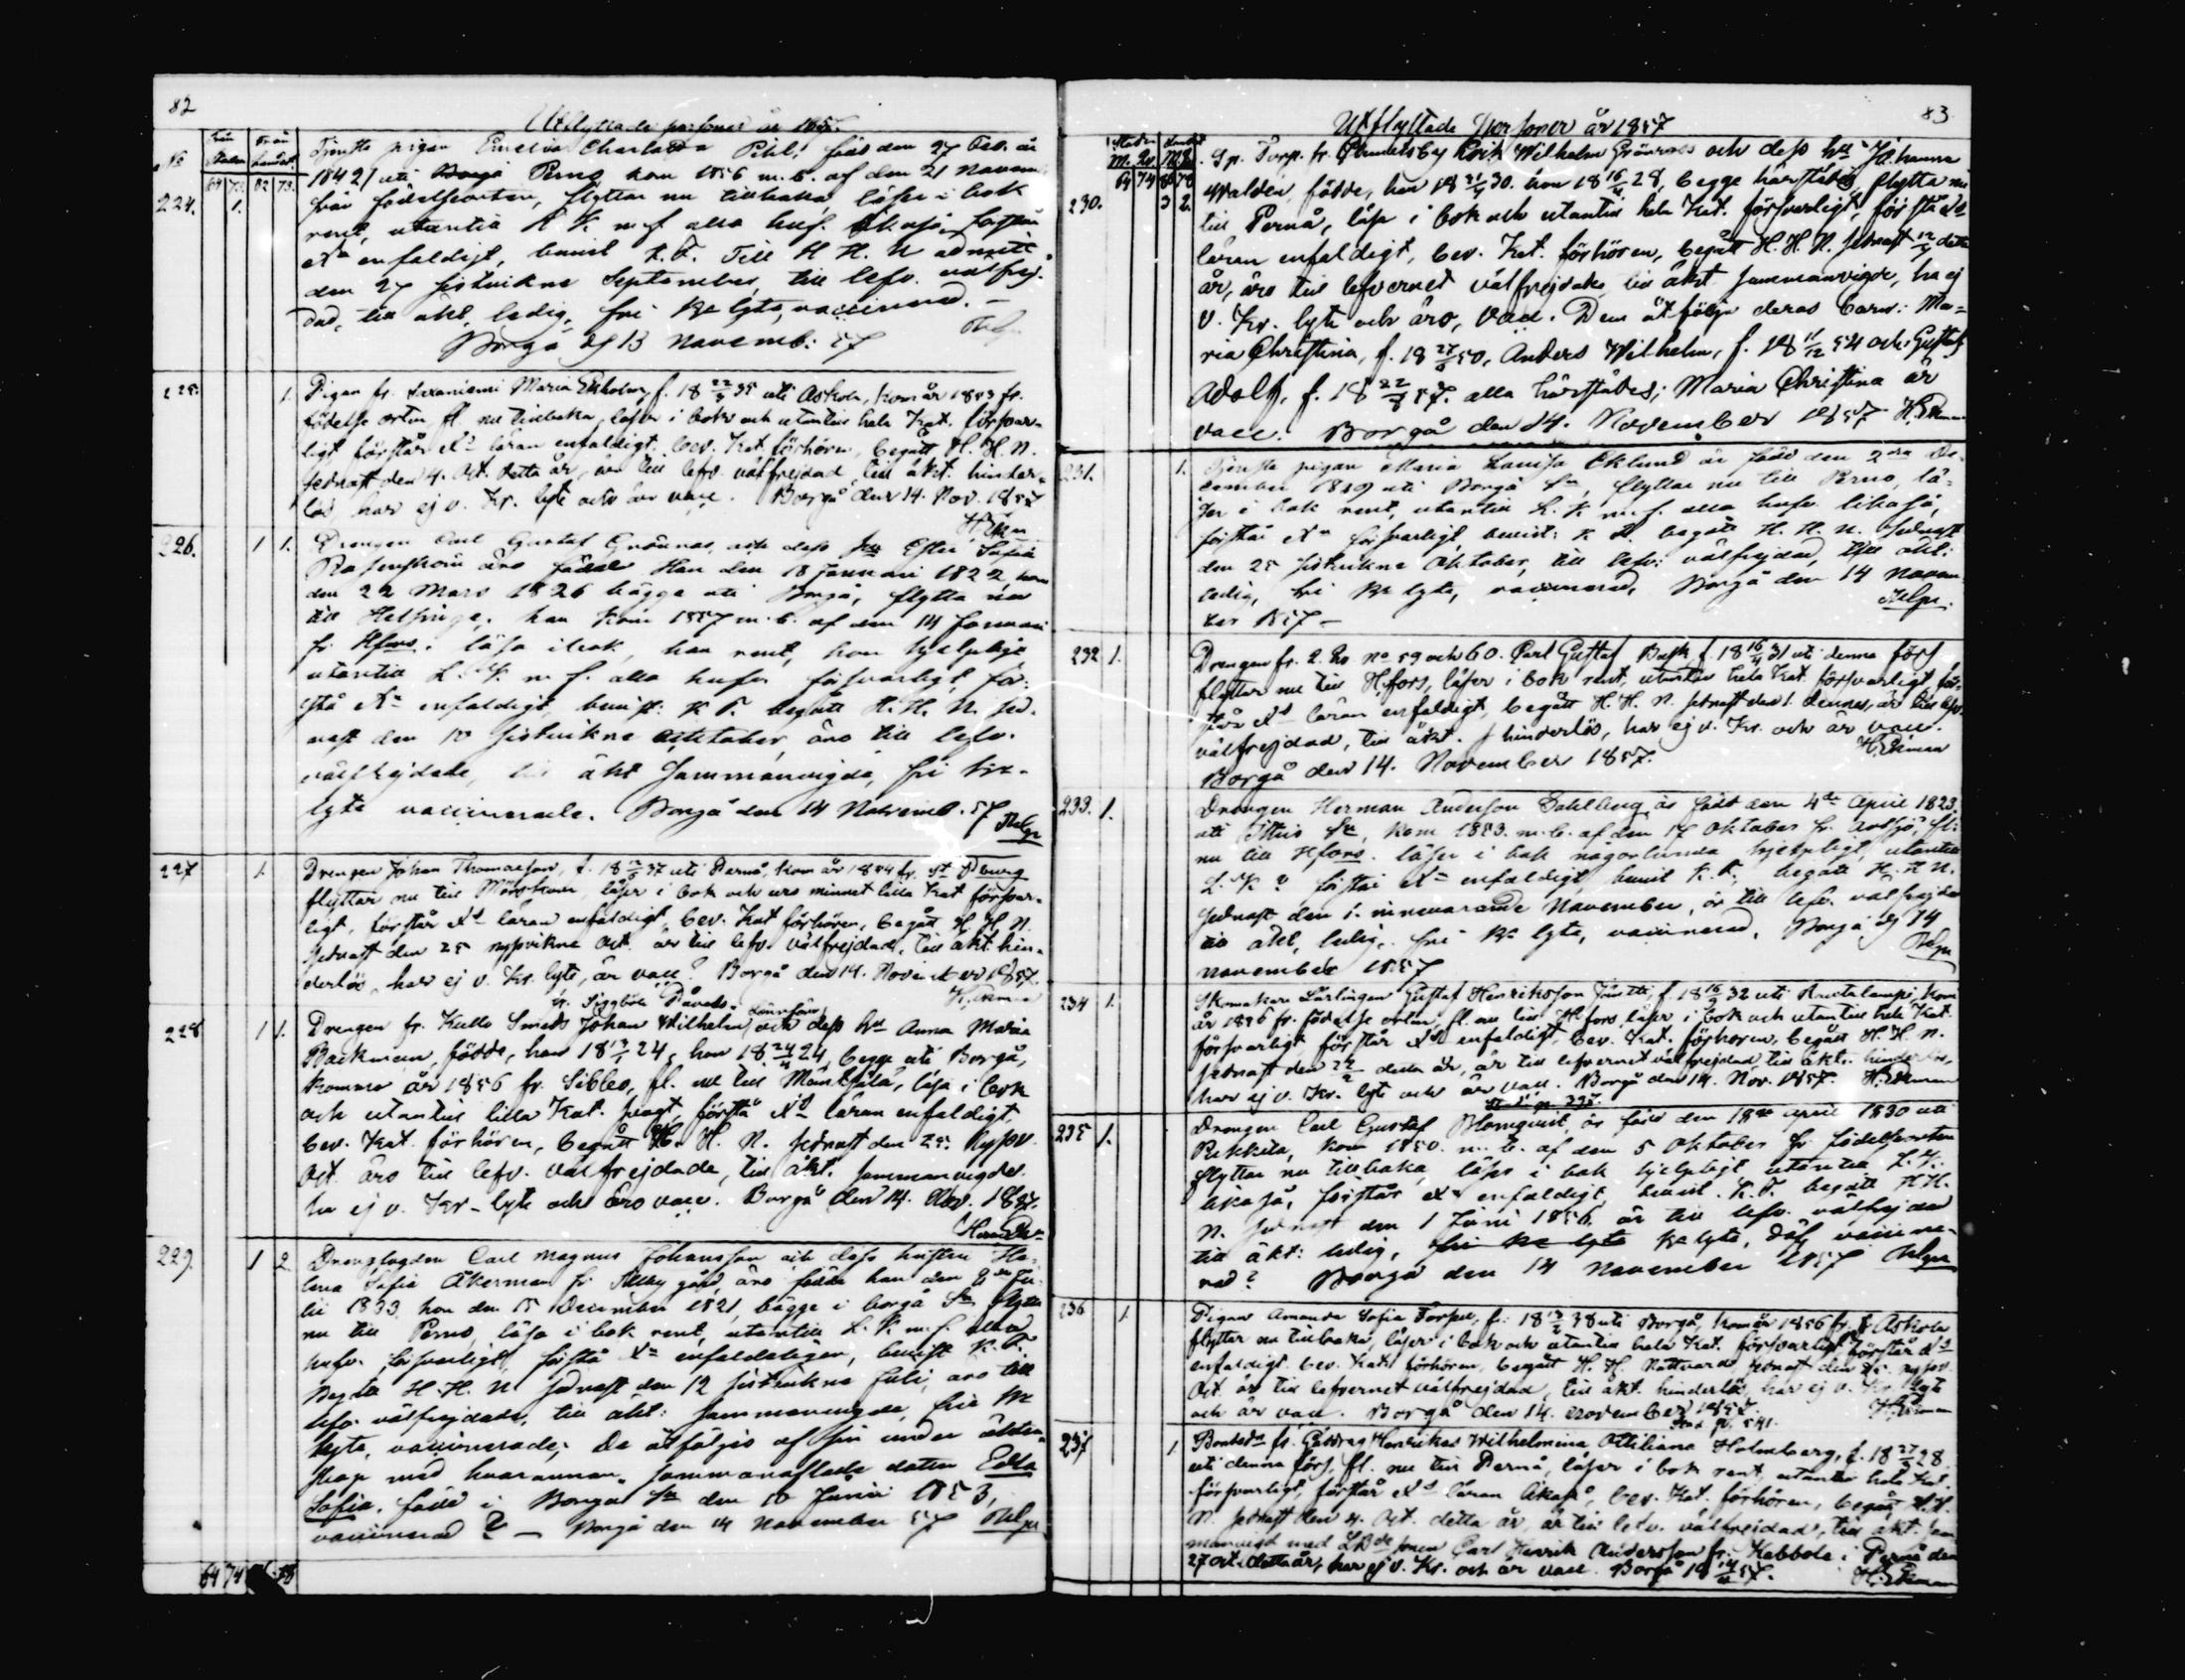 82
Utflyttade personer år 1857.
No Från Staden Från Landet
64 73. 82 73.
224. 1. Tjenste pigan Emelia Charlotta Pihl, född den 27 Feb. år
1842 uti Perno kom 1856 m. b. af den 21 Novem
från födelseorten, flyttar nu tillbaka, läser i bok
rent, utantill L. K. m. f. alla huf. likaså, förstår
enfaldigt, bevist K. F. Till H. H. N. admitt.
den 27 sistvikne September, till lefv. välfrej-
dad, till äkt. ledig, fri Kr lyte, vaccinerad. —
Borgå d 13 Novemb: 57
225. 1. Pigan fr. Maria Ekholm, f. 18 35 uti Askola, kom år 1853 fr.
födelse orten, fl. nu tillbaka, läser i bok och utantill hela Kat. försvar-
ligt förstår Xd läran enfaldigt. bev. Kat. förhören, begått H. H. N.
sednast den 4. Oct. detta år, är till lefv. välfrejdad, till äkt. hinder-
lös, har ej v. Kr. lyte och är vacc. Borgå den 14. Nov. 1857
226. 1 1. Drengen Carl Gustaf Grönnas, och dess hu Ester Sofia
äro födde Han den 18 Januari 1822, hon
den 22 Mars 1826 bägge uti Borgå, flytta nu
till Helsinge, han kom 1857 m. b. af den 14 Januari
fr. Hfors. läsa i bok, han rent, hon hjelpligt
utantill L. K. m. f. alla hufv. försvarligt, för-
stå enfaldigt, bevist: K. F. begått H. H. N. sed-
nast den 10 sistvikne Oktober, äro till lefv.
välfrejdade, till äkt sammanvigde, fri Kr.
lyte vaccinerade. Borgå den 14 Novemb. 57
227 1. Drengen Johan Thomasson, f. 18 37 uti Pernå, kom år 1854 fr. St Pburg
flyttar nu till Mörskom, läser i bok och urs minnet lilla Kat försvar-
ligt, förstår Xd läran enfaldigt, bev. Kat förhören, begått H. H. N.
sednast den 25 nyssvikne Oct. är till lefv. välfrejdad, till äkt. hin-
derlös, har ej v. Kr. lyte, är vacc? Borgå den 14. November 1857.
fr. Siggböle
228 1 1. Drengen fr. Kullo Smeds Johan Wilhelm och dess hu Anna Maria
Backman, födde, han 18 24, hon 18 24, begge uti Borgå,
kommo år 1856 fr. Sibbo, fl. nu till Mäntsälä, läsa i bok
och utantill lilla Kat. svagt, förstå Xd läran enfaldigt,
bev. Kat. förhören, begått H. H. N. sednast den 25. nyssv.
Oct. äro till lefv. välfrejdade, till äkt. sammanvigde.
ha ej v. Kr. lyte och äro vacc. Borgå den 14. Nov. 1857.
229. 1 2 Drengfogden Carl Magnus Johansson och dess hustru He-
lena Sofia Åkerman fr. gård, äro födde han den Ju-
lii 1833 hon den 15 December 1821, bägge i borgå Sn flytta
nu till Perno, läsa i bok rent, utantill L. K. m. f. alla
hufv. försvarligt, förstå enfaldeligen, bevist K. F.
H. H. N. sednast den 12 sistvikne Juli, äro till
lefv välfrejdade, till äkt: sammanvigde, fri Kr
lyte, vaccinerade; De åtföljes af sin under äkten-
skap med hvarannan sammanaflade dotter Edla
Sofia, född i Borgå Sn den 10 Junii 1853,
vaccinerad? — Borgå den 14 November 57
64 74 78
83
Utflyttade Personer år 1857
Staden Landet
M. Q. M. Q.
64 74 78
230. 3 2. Sp. Torp. fr. Wilhelm Grönroos och dess hu Johanna
Walden, födde, han 18 30. hon 18 16/4 28, begge härstädes, flytta nu
till Pernå, läsa i bok och utantill hela Kat. försvarligt, förstå Xd
läran enfaldigt, bev. Kat. förhören, begått H. H. N. sednast detta
år, äro till lefvernet välfrejdade, till äkt. sammanvigde, ha ej
v. Kr. lyte och äro, vacc. Dem åtfölja deras barn: Ma-
ria Christina, f. 18 50, Anders Wilhelm, f. 18 11/12 54 och Gustaf
Adolf, f. 18 57. alla härstädes; Maria Christina är
vacc. Borgå den 14. November 1857. H. Ekman
231. 1. Tjenste pigan Maria Lovisa Eklund är född den 2dra De-
cember 1829 uti Borgå Sn, flyttar nu till Perno, lä-
ser i bok rent, utantill L. K. m. f. alla hufv. likaså,
förstår försvarligt, bevist: K. F. begått H. H. N. sednast
den 25 sistvikne Oktober, till lefv: välfrejdad, till äkt:
ledig, fri Kr lyte, vaccinerad, Borgå den 14 Novem-
ber 1857 —
232 1. Drengen fr. 2. No 59 och 60. Carl Gustaf f. 18 16/4 31 uti denna förs.
flyttar nu till Hfors, läser i bok rent, utantill hela Kat. försvarligt, för-
står Xd läran enfaldigt, begått H. H. N. sednast den 1. dennes, är till lefv.
välfrejdad, till äkt. hinderlös, har ej v. Kr. och är vacc.
Borgå den 14. November 1857. H. Ekman
233. 1. Drengen Herman Andersson Dahlberg är född den 4de April 1823.
uti Sn, kom 1853. m. b. af den 17 Oktober fr. fl.
nu till Hfors. läser i bok någorlunda hjelpligt, utantill
L. K? förstår enfaldigt, bevist K. F., begått H. H. N.
sednast den 1. innevarande November, är till lefv. välfrejdad
till äkt, ledig, fri Kr lyte, vaccinerad, Borgå d 14
November 1857
234 1. Skomakare Lärlingen Gustaf Henriksson f. 18 32 uti Rautalampi, kom
år 1856 fr. födelse orten, fl. nu till Hfors, läser i bok och utantill hela Kat.
försvarligt förstår Xd enfaldigt, bev. Kat. förhören, begått H. H. N.
sednast den detta år, är till lefvernet välfrejdad, till äkt. hinderlös,
har ej v. Kr. lyte och är vacc. Borgå den 14. Nov. 1857. H. Ekman
235 1. Drengen Carl Gustaf Blomqvist, är född den 18de April 1830 uti
kom 1850. m. b. af den 5 Oktober fr födelseorten
flyttar nu tillbaka, läser i bok hjelpligt utantill L. K.
likaså, förstår enfaldigt, bevist. K. F. begått H. H.
N. sednast den 1 Juni 1856, är till lefv. välfrejdad
till äkt: ledig, fri Kr lyte Kr lyte, döf, vaccine-
rad? Borgå den 14 November 1857
236 1. Pigan Amanda Sofia f. 18 38 uti Borgå, kom år 1856 fr. Askola
flyttar nu tillbaka, läser i bok och utantill hela Kat. försvarligt, förstår Xd
enfaldigt. bev. Kat. förhören, begått H. H. Nattvard sednast den 25. nyssv.
Oct. är till lefvernet välfrejdad, till äkt. hinderlös, har ej v. Kr. lyte
och är vacc. Borgå den 14. November 1857. H. Ekman
237 1 fr. Henrika Wilhelmina Ottiliana Holmberg, f. 18 27/5 28
uti denna förs, fl. nu till Pernå, läser i bok rent, utantill hela Kat.
försvarligt, förstår Xd läran likaså, bev. Kat. förhören, begått H. H.
N. sednast den 4. Oct. detta år, är till lefv. välfrejdad, till äkt. sam-
manvigd med sonen Carl Henrik Andersson fr. Kabböle i Pernå den
27 Oct. detta år, har ej v. Kr. och är vacc. Borgå 18 57. H. Ekman